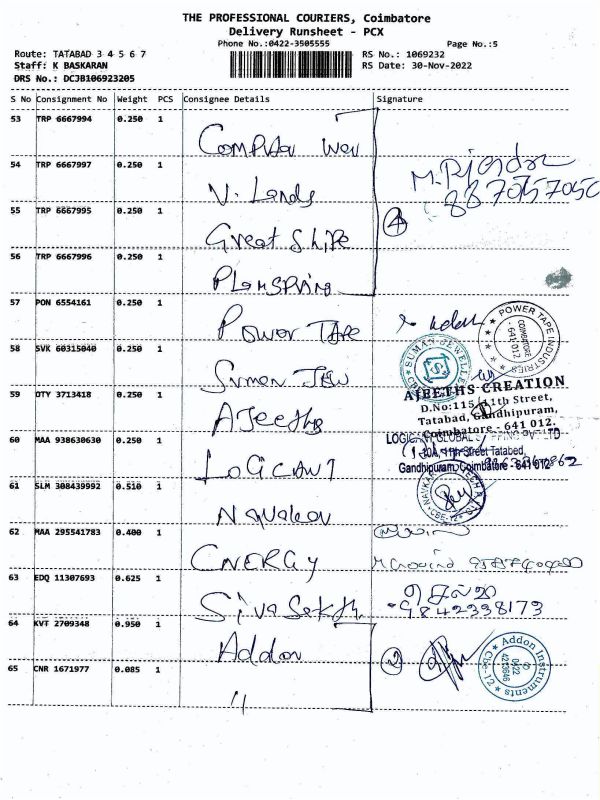 THE PROFESSIONAL COURIERS, Coimbatore
Delivery Runsheet - PCX
Phone No.:0422-3505555
Page No.:5
Route: TATABAD 3 4 5 6 7
RS No.: 1069232
Staff: K BASKARAN
RS Date: 30-Nov-2022
DRS No.: DCJB106923205
S No Consignment No Weight PCS Consignee Details Signature
53 TRP 6667994 0.250 1
Computer
54 TRP 6667997 0.250 1
V. Lands
55 TRP 6667995 0.250 1
4
Great Shipe
56 TRP 6667996 0.250 1
57 PON 6554161 0.250 1
Power TAPE
POWER TAPE INDUSTRIES
COIMBATORE - 641 012
58 SVK 60315040 0.250 1
SUMAN JEWELLE
Suman JEW
AJBETHS CREATION
59 OTY 3713418 0.250 1
D.No:115/11th Street,
Tatabad, Gandhipuram,
Coimbatore - 641 012.
60 MAA 930630630 0.250 1
130A, 11th Street Tatabed,
Gandhipuram, Coimbatore - 641 012
LOGICANT
61 SLM 308439992 0.510 1
CBE-12
62 MAA 295541783 0.400 1
ENERGY
63 EDQ 11307693 0.625 1
9842338173
Siva Sakth
64 KVT 2709348 0.950 1
Addon
2
Addon Instruments
0422
CBE-12
65 CNR 1671977 0.085 1
"